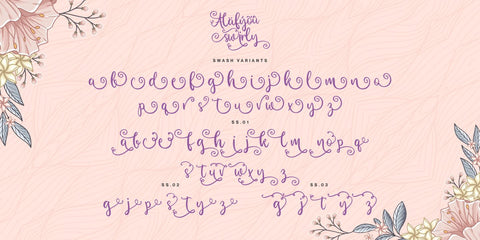 Alafyou
swirly
SWASH VARIANTS
a b c d e f g h i j k l m n a
p q r s t u v w x y z
SS.01
a b c e f g h i j k l m n o p q
s t u v w x y z
SS.02
SS.03
g e j e p e s e y e z e
q s t y z